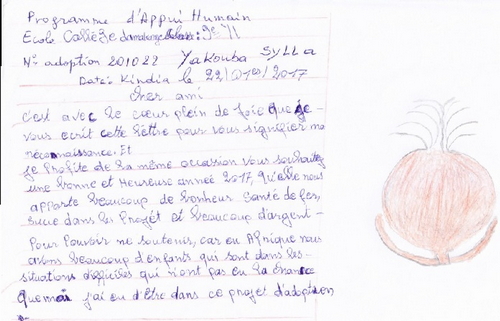 Programme d'Appui Humain
Ecole Collège damakanya classe: 9e A
N° adoption 201022 Yakouba SYLLA
Date: Kindia le 22/01er/2017
Cher ami
c'est avec le cœur plein de joie que je
vous ecrit cette lettre pour vous signifier ma
réconnaissance. Et
je profite de la même occasion vous souhaitez
une bonne et Heureuse année 2017, qu'elle nous
apporte beaucoup de bonheur santé de fer,
succè dans le Projet et beaucoup d'argent -
Pour Pouvoir me soutenir, car en Afrique nous
avons beaucoup d'enfants qui sont dans les -
situations difficiles qui n'ont pas eu la chance
que moi j'ai eu d'être dans ce projet d'adoption